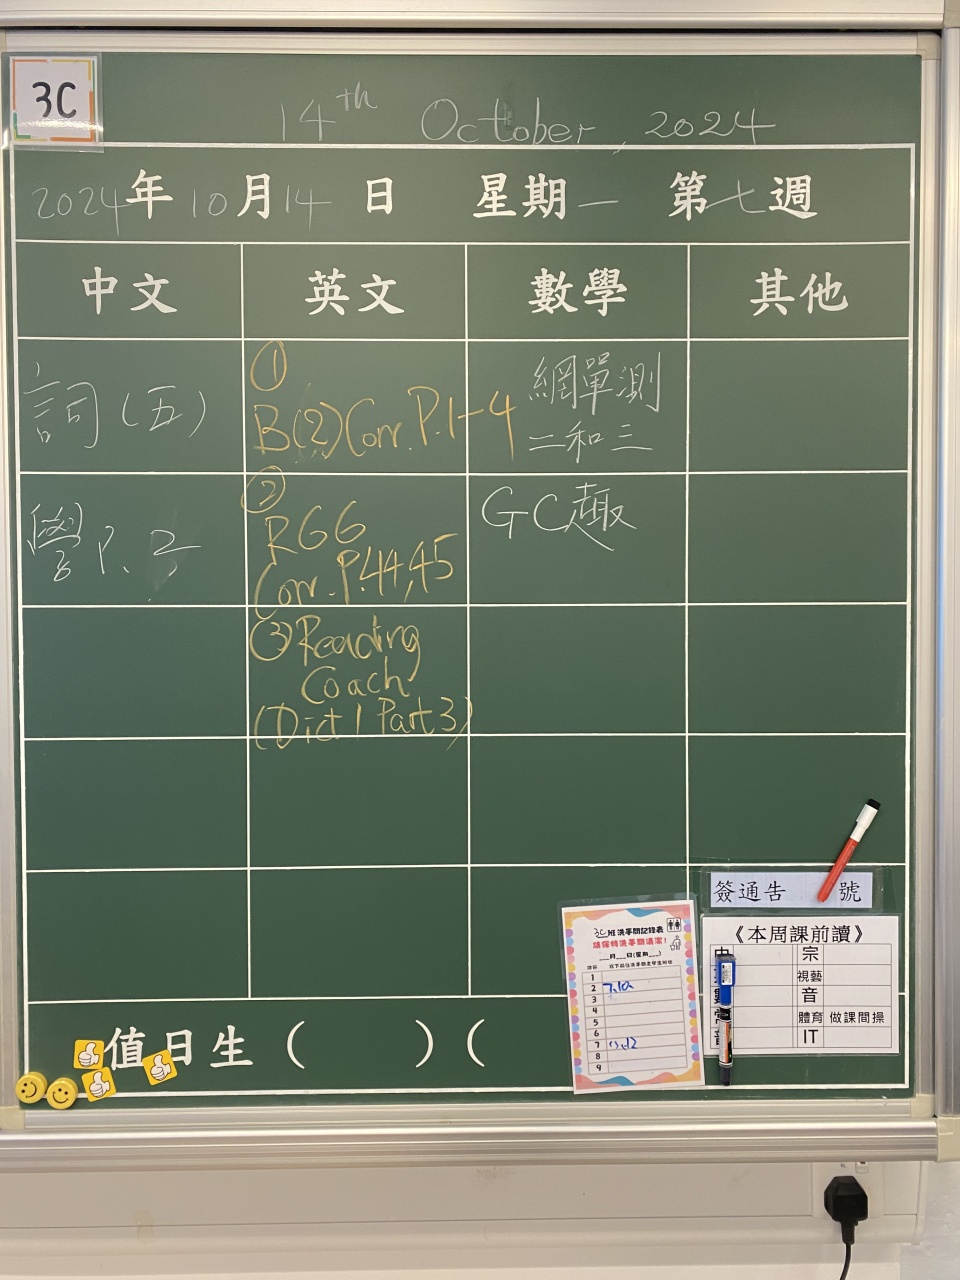 3C
14th October, 2024
2024年10月14日 星期一 第七週
中文 英文 數學 其他
詞(五)
學P.3
①
B(2)Corr. P.1-4
②
RGG
Corr. P.44,45
③Reading
Coach
(Dict 1 Part 3)
網單測
二和三
GC趣
簽通告 號
《本周課前讀》
宗
視藝
音
體育 做課間操
IT
3C班洗手間記錄表
請保持洗手間清潔!
___月___日(星期___)
1
2 7,10
3
4
5
6
7 11,12
8
9
值日生( )(